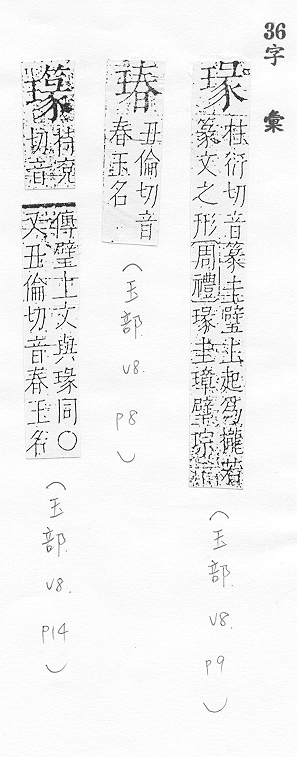 36字 彙
瑑
柱衍切音篆圭璧上起為壠若
篆文之形周禮瑑圭璋璧琮
(玉部 v8. p9)
瑃
丑倫切音
春玉名
(玉部 v8. p8)
特兖
切音
傳璧上文與瑑同〇
又丑倫切音春玉名
(玉部 v8. p14)